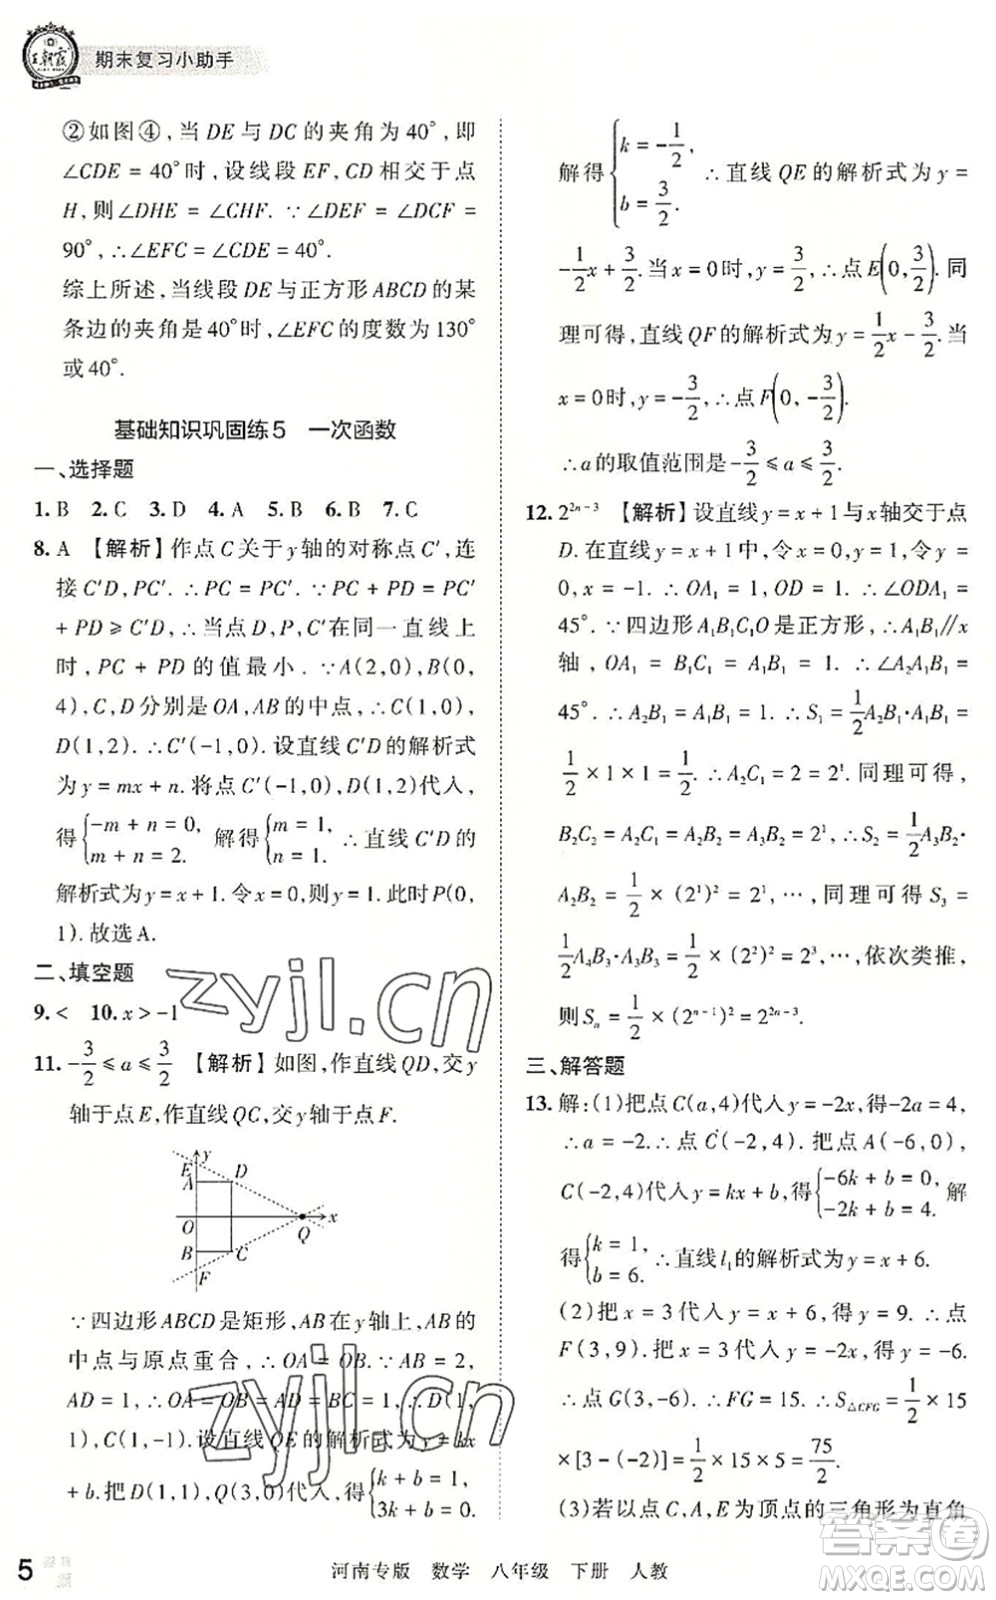 王朝霞
期末复习小助手
②如图④,当DE与DC的夹角为40°,即
∠CDE=40°时,设线段EF,CD相交于点
H,则∠DHE=∠CHF.∵∠DEF=∠DCF=
90°,∴∠EFC=∠CDE=40°.
综上所述,当线段DE与正方形ABCD的某
条边的夹角是40°时,∠EFC的度数为130°
或40°.
基础知识巩固练5 一次函数
一、选择题
1. B 2. C 3. D 4. A 5. B 6. B 7. C
8. A 【解析】作点C关于y轴的对称点C′,连
接C′D,PC′.∴PC=PC′.∴PC+PD=PC′
+PD≥C′D,∴当点D,P,C′在同一直线上
时,PC+PD的值最小.∵A(2,0),B(0,
4),C,D分别是OA,AB的中点,∴C(1,0),
D(1,2).∴C′(-1,0).设直线C′D的解析式
为y=mx+n.将点C′(-1,0),D(1,2)代入,
得{-m+n=0, m+n=2. 解得{m=1, n=1. ∴直线C′D的
解析式为y=x+1.令x=0,则y=1.此时P(0,
1).故选A.
二、填空题
9. < 10. x>-1
11. -3/2≤a≤3/2 【解析】如图,作直线QD,交y
轴于点E,作直线QC,交y轴于点F.
y
E
A D
O Q x
B C
F
∵四边形ABCD是矩形,AB在y轴上,AB的
中点与原点重合,∴OA=OB.∵AB=2,
AD=1,∴OA=OB=AD=1.∴D(1,
1),C(1,-1).设直线QE的解析式为y=kx
+b.把D(1,1),Q(3,0)代入,得{k+b=1, 3k+b=0.
解得{k=-1/2, b=3/2. ∴直线QE的解析式为y=
-1/2x+3/2.当x=0时,y=3/2,∴点E(0,3/2).同
理可得,直线QF的解析式为y=1/2x-3/2.当
x=0时,y=-3/2,∴点F(0,-3/2).
∴a的取值范围是-3/2≤a≤3/2.
12. 2²ⁿ⁻³ 【解析】设直线y=x+1与x轴交于点
D.在直线y=x+1中,令x=0,y=1.令y=
0,x=-1.∴OA₁=1,OD=1.∴∠ODA₁=
45°.∵四边形A₁B₁C₁O是正方形,∴A₁B₁∥x
轴,OA₁=B₁C₁=A₁B₁=1.∴∠A₂A₁B₁=
45°.∴A₂B₁=A₁B₁=1.∴S₁=1/2A₂B₁·A₁B₁=
1/2×1×1=1/2.∴A₂C₁=2=2¹.同理可得,
B₂C₂=A₂C₁=A₂B₂=A₃B₂=2¹,∴S₂=1/2A₃B₂·
A₂B₂=1/2×(2¹)²=2¹,…,同理可得S₃=
1/2A₄B₃·A₃B₃=1/2×(2²)²=2³,…,依次类推,
则Sₙ=1/2×(2ⁿ⁻¹)²=2²ⁿ⁻³.
三、解答题
13. 解:(1)把点C(a,4)代入y=-2x,得-2a=4,
∴a=-2.∴点C(-2,4).把点A(-6,0),
C(-2,4)代入y=kx+b,得{-6k+b=0, -2k+b=4. 解
得{k=1, b=6. ∴直线l₁的解析式为y=x+6.
(2)把x=3代入y=x+6,得y=9.∴点
F(3,9).把x=3代入y=-2x,得y=-6.
∴点G(3,-6).∴FG=15.∴S△CFG=1/2×15
×[3-(-2)]=1/2×15×5=75/2.
(3)若以点C,A,E为顶点的三角形为直角
zyjl.cn
zyjl.cn
答案圈
MXQE.COM
5
河南专版 数学 八年级 下册 人教